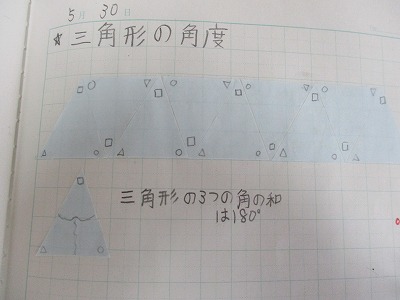 5月30日
☆三角形の角度
三角形の3つの角の和
は180°